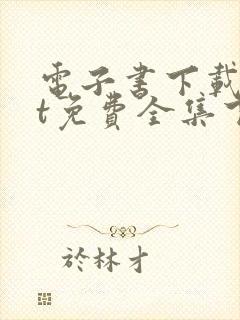 電子書下載
t免費全集
於林才